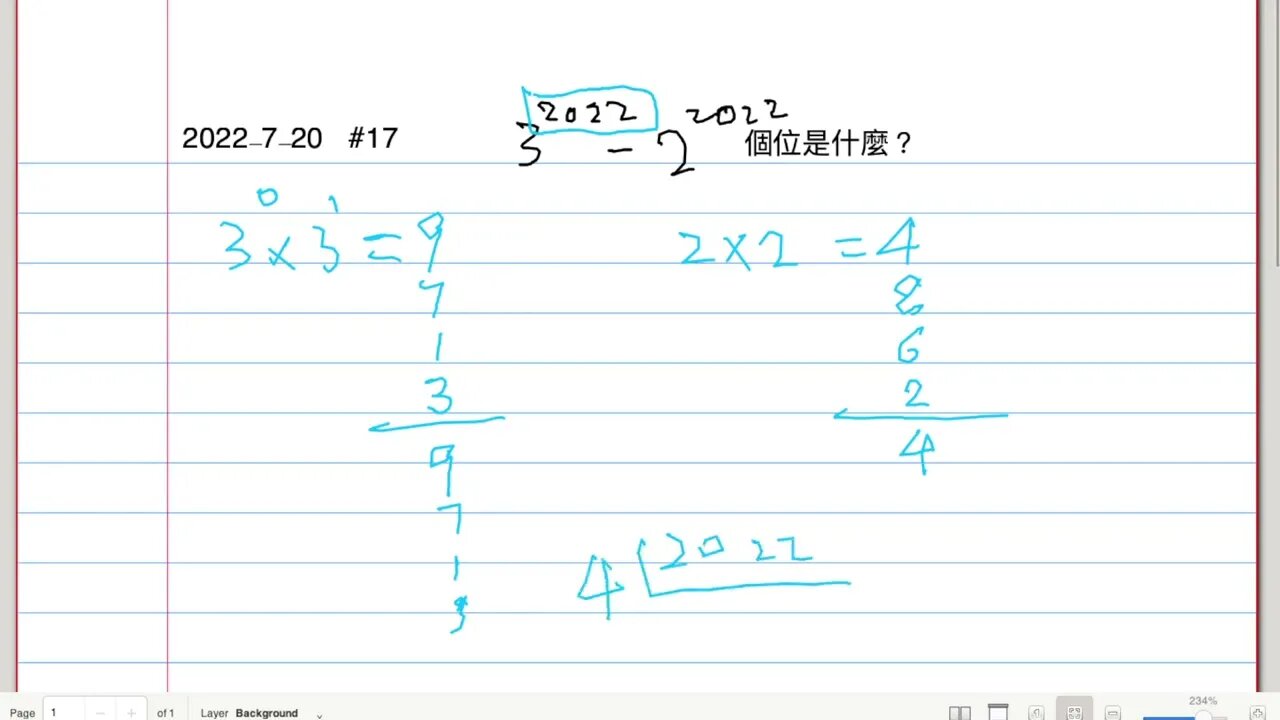 2022_7_20 #17 3^2022 - 2^2022 個位是什麼？
0 1
3 × 3 = 9 2 × 2 = 4
7 8
1 6
3 2
9 4
7
1
3
4 2022
Page 1 of 1 Layer Background 234%